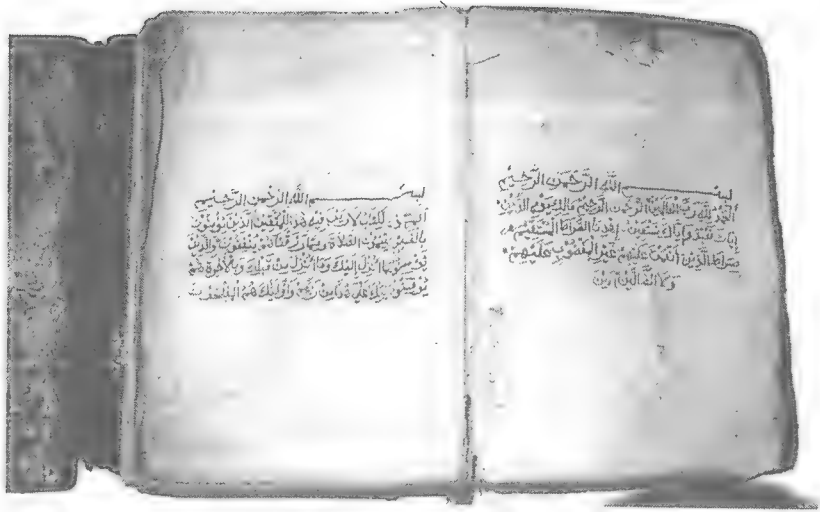 بسم الله الرحمن الرحيم
الحمد لله رب العالمين الرحمن الرحيم مالك يوم الدين
إياك نعبد وإياك نستعين إهدنا الصراط المستقيم
صراط الذين أنعمت عليهم غير المغضوب عليهم
ولا الضالين امين
بسم الله الرحمن الرحيم
الم ذلك الكتب لا ريب فيه هدى للمتقين الذين يؤمنون
بالغيب ويقيمون الصلاة ومما رزقناهم ينفقون والذين
يؤمنون بما انزل اليك وما انزل من قبلك وبالآخرة هم
يوقنون اولئك على هدى من ربهم واولئك هم المفلحون